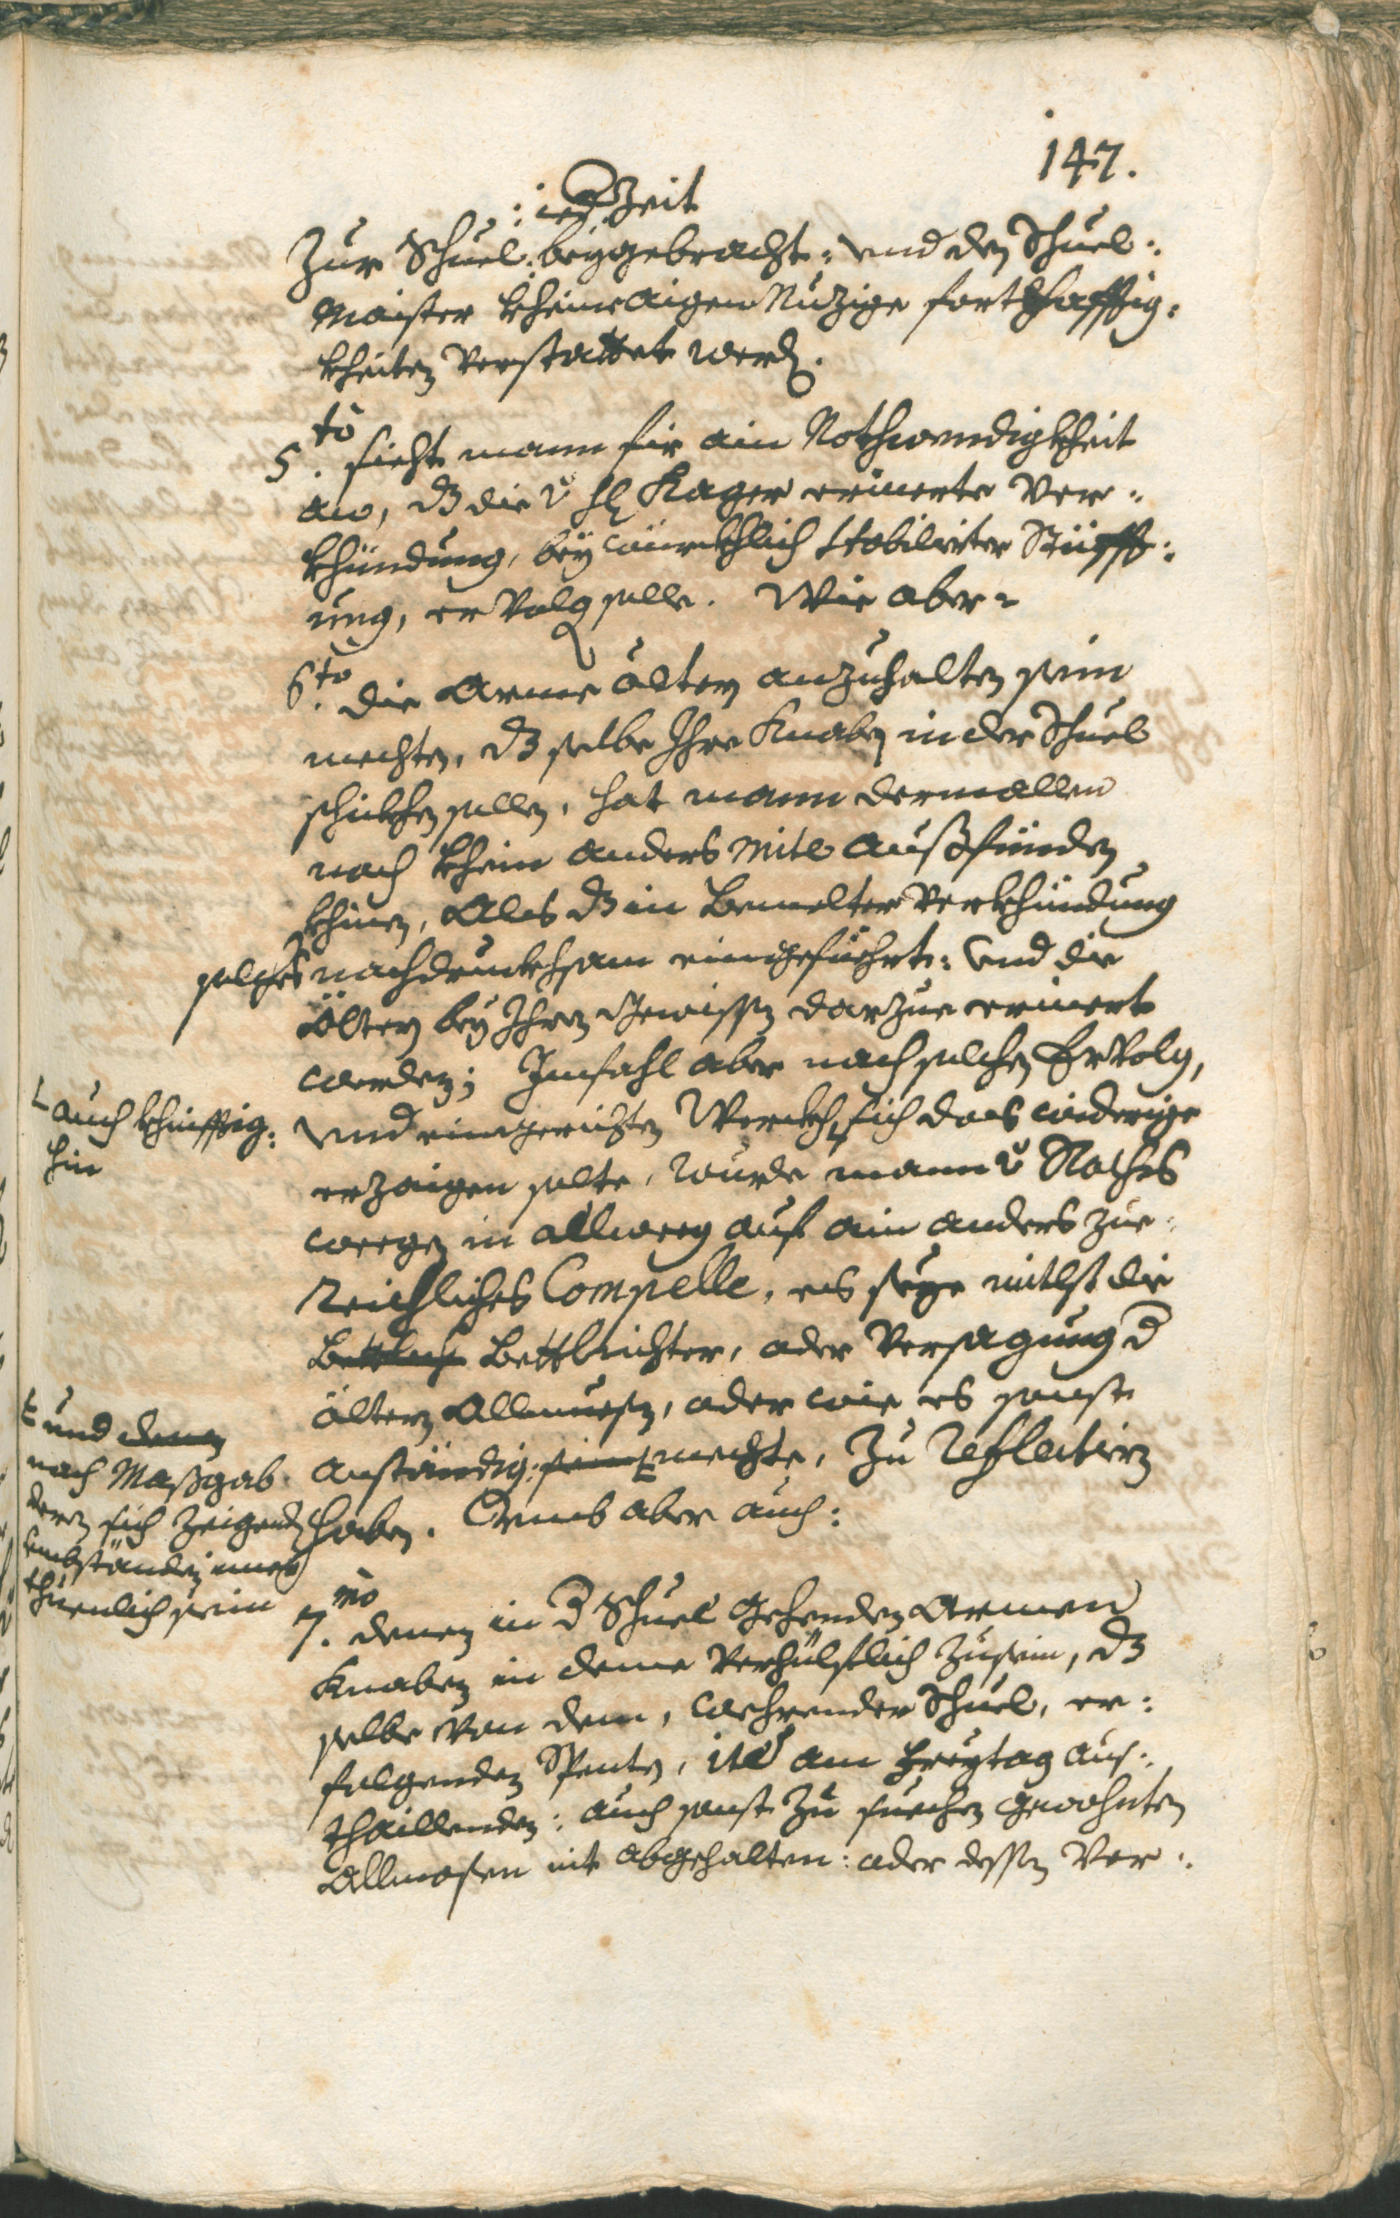 147.
: ied. Zeit
Zur Schuel: beygebracht: und den Schuel:
Maister kheine aigen Nuzige
kheiten verstattet werd.
5.to sicht mann fir ain Nothwendigkheit
an, dz die v. H. Kager erinerte Ver:
khündung, bey würckhlich stabilirter Stüfft:
ung, ervolg solle. Wie aber
6.to die Arme ölten anzuhalten sein
mechten, dz selbe Ihre Knaben in der Schuel
schickhen sollen, hat mann dermallen
noch khein anders Mitl außfünden
khinen, Als dz in bemelter verkhündung
solches nachdruckhsam eingefiehrt: und die
ölten bey Ihren Gewissen darzue erinert
werden; Imfahl aber nach solchen Ervolg,
und eingerichten Werckh, sich das widerige
erzaigen solte, wurde mann v. Rathß
weegen in allweeg auf ain anders zue:
reichliches Compelle, es seye mitlst die
Bettlrich Bettlrichter, oder versagung d.
ölteren Allmuesen, oder wie es sonst
anständig: sein mechte, zu reflectirn
haben. Umb aber auch:
L auch khinfftig:
hin
und denen
nach Maßgab
deren sich zeigenden
umbständen imer
thuenlich sein
7.mo denen in d. Schuel gehenden Armen
Knaben in deme verhülflich zusein, dz
selbe von dem, wehrender Schuel, er:
folgenden Spenten, item am Freytag aus:
thaillenden: auch sonst zu suechen gewohnten
Allmosen nit abgehalten: oder dessen Ver: